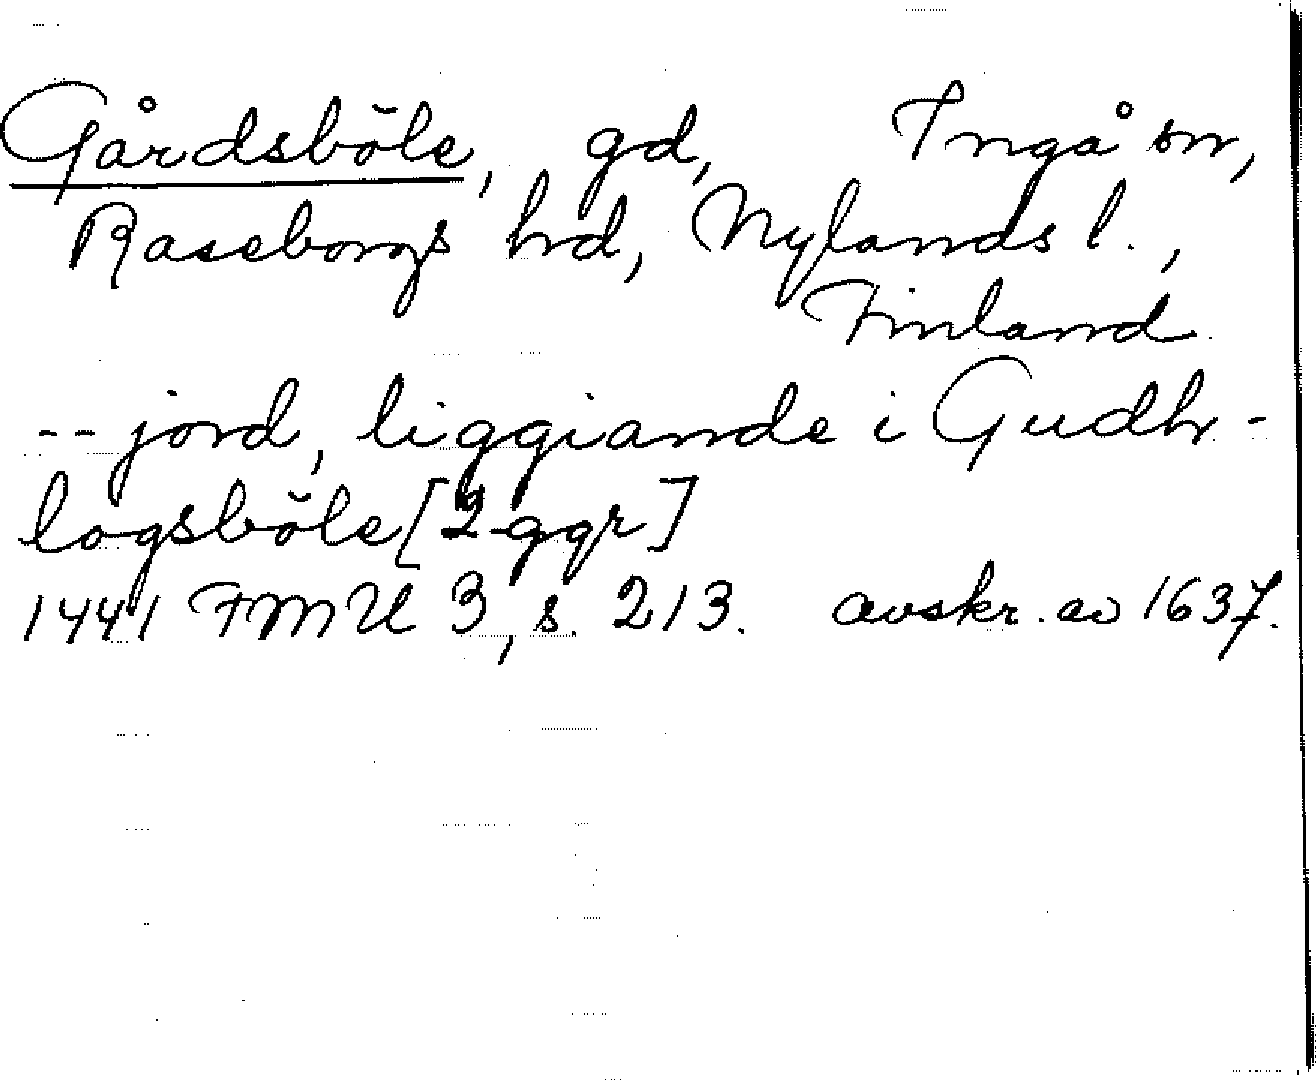 Gårdsböle, gd, Ingå sn,
Raseborgs hrd, Nylands l.,
Finland.
-- jord, liggiande i Gudh-
logsböle [2 ggr]
1441 FMU 3, s. 213. avskr. av 1637.